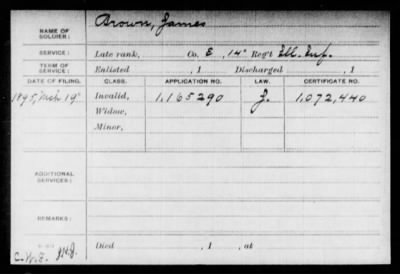 NAME OF SOLDIER: Brown, James
SERVICE: Late rank, Co. E, 14" Reg't Ill. Inf.
TERM OF SERVICE: Enlisted , 1 Discharged , 1
DATE OF FILING. CLASS. APPLICATION NO. LAW. CERTIFICATE NO.
1895, Mch 19" Invalid, 1,165290 J. 1,072,440
Widow,
Minor,
ADDITIONAL SERVICES:
REMARKS:
Died , 1 , at